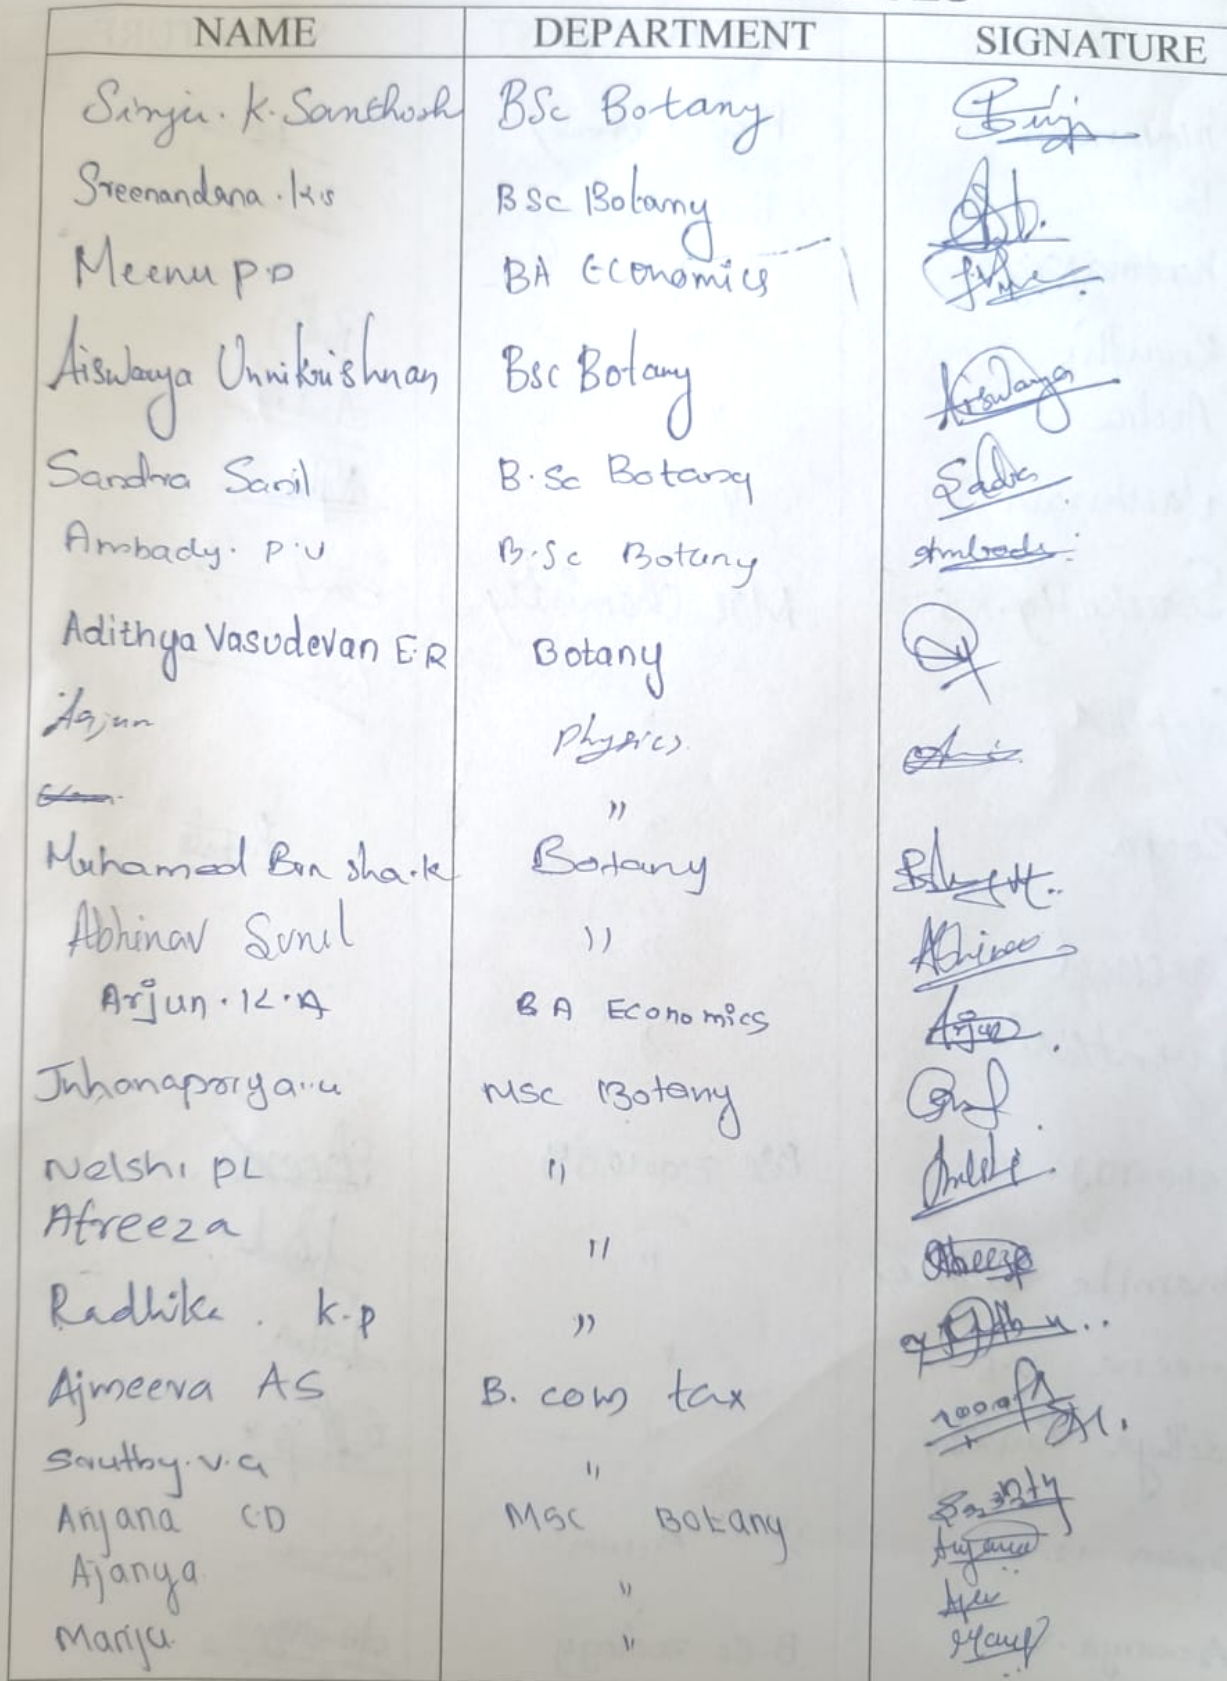 NAME DEPARTMENT SIGNATURE
Sinju. K. Santhosh BSc Botany
Sreenandana. K.S BSc Botany
Meenu P.D BA Economics
Aiswarya Unnikrishnan Bsc Botany Aiswarya
Sandra Sanil B.Sc Botany
Ambady. P.U B.Sc Botany
Adithya Vasudevan E.R Botany
Arjun Physics
"
Muhamed Bin sha.k Botany
Abhinav Sunil " Abhinav
Arjun.K.A BA Economics Arjun
MSc Botany
Nelshi PL "
Afreeza " Afreeza
Radhika. K.P "
Ajmeera AS B.com tax
V.G "
Anjana CD MSc Botany Anjana
Ajanya "
Manju "